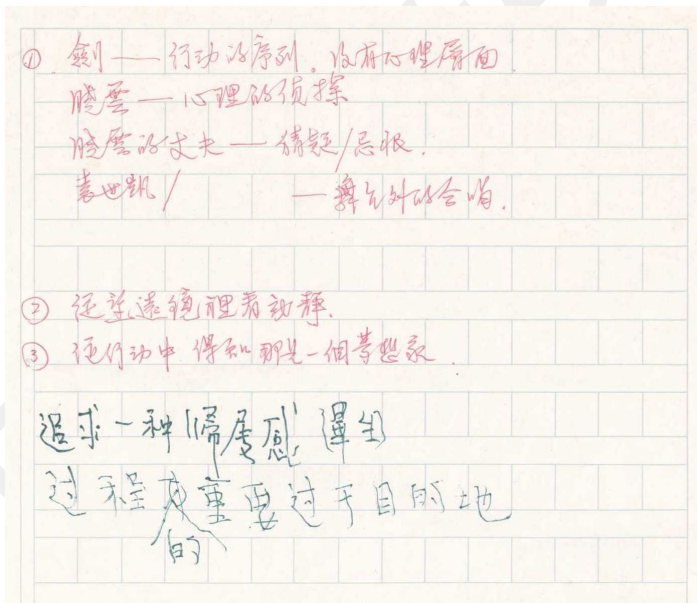 ① 劍——行动的序列,没有心理層面
曉雲——心理的偵探
曉雲的丈夫——猜疑/忌恨.
袁世凱/ ——舞台外的合唱.
② 从望遠鏡裡看動靜.
③ 從行动中得知那是一個夢想家
追求一种「歸屬感」
过程的重要过于目的地